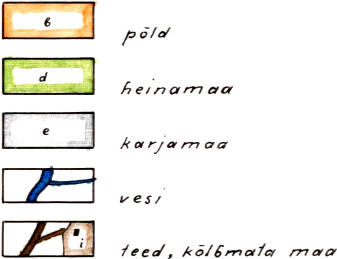 b põld
d heinamaa
e karjamaa
vesi
i teed, kõlbmata maa